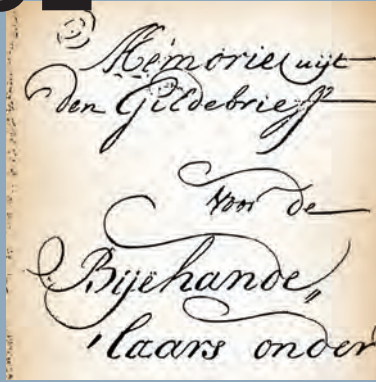 Memorie uijt
den Gildebrieff
voor de
Bijehande„
„laars onder